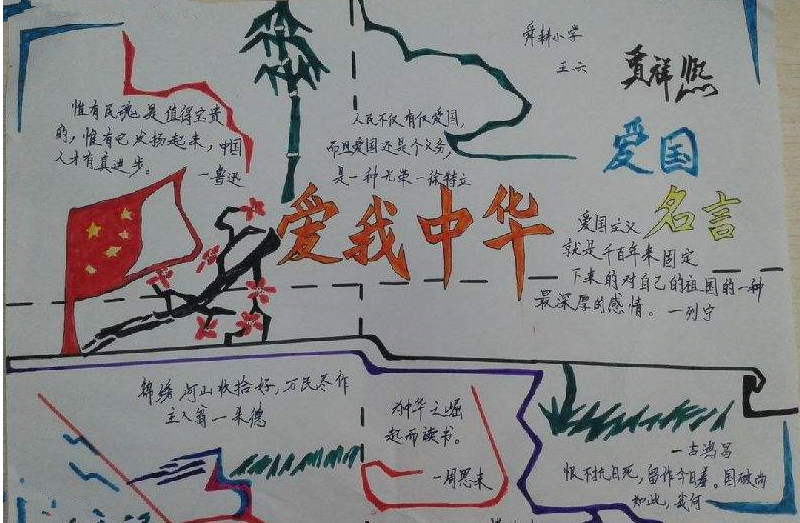 舜耕小学
五六
贾祥熙
惟有民魂是值得宝贵
的，惟有它发扬起来，中国
人才有真进步。
—鲁迅
人民不仅有仅爱国，
而且爱国还是个义务，
是一种光荣—徐特立
爱我中华
爱国
名言
爱国主义
就是千百年来固定
下来的对自己的祖国的一种
最深厚的感情。—列宁
锦绣河山收拾好，万民尽作
主人翁—朱德
为中华之崛
起而读书。
—周恩来
—吉鸿昌
恨不抗日死，留作今日羞。国破尚
如此，我何